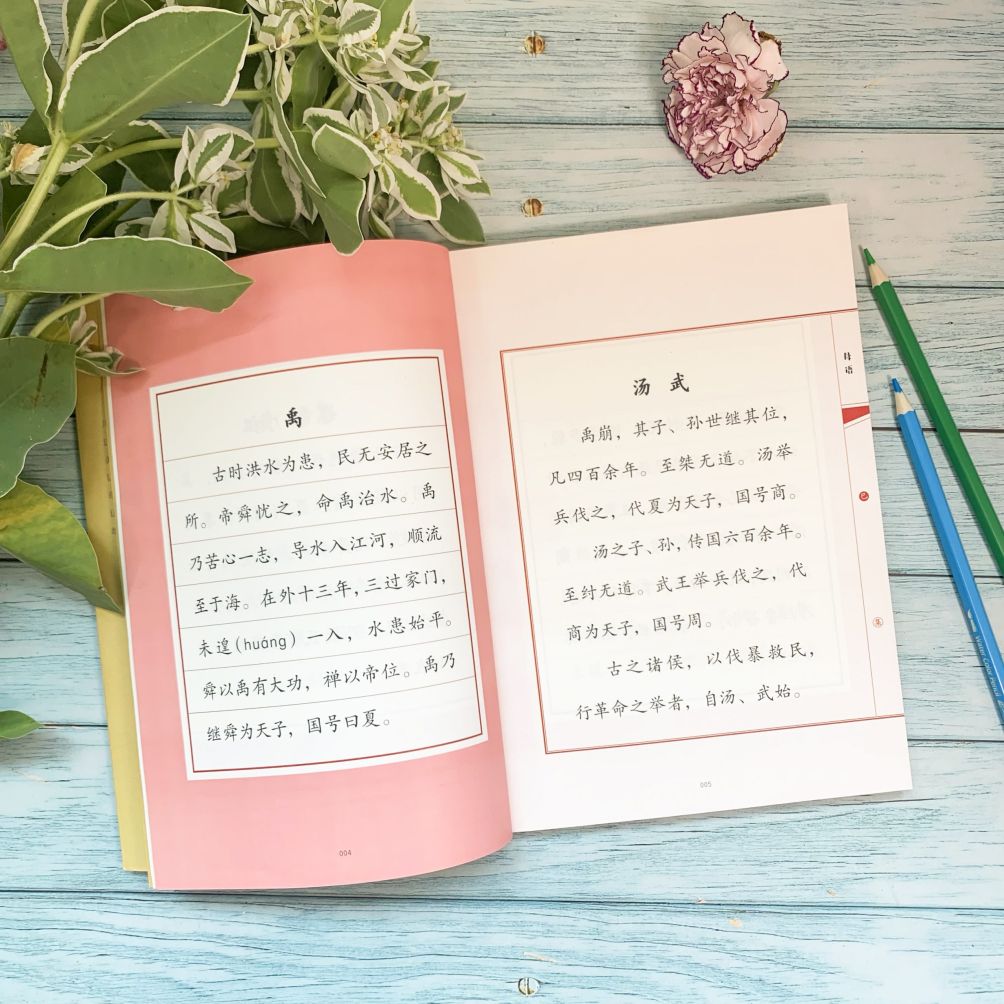 禹
古时洪水为患，民无安居之
所。帝舜忧之，命禹治水。禹
乃苦心一志，导水入江河，顺流
至于海。在外十三年，三过家门，
未遑(huáng)一入，水患始平。
舜以禹有大功，禅以帝位。禹乃
继舜为天子，国号曰夏。
004
汤 武
禹崩，其子、孙世继其位，
凡四百余年。至桀无道。汤举
兵伐之，代夏为天子，国号商。
汤之子、孙，传国六百余年。
至纣无道。武王举兵伐之，代
商为天子，国号周。
古之诸侯，以伐暴救民，
行革命之举者，自汤、武始。
005
母语
Water Color Pencil